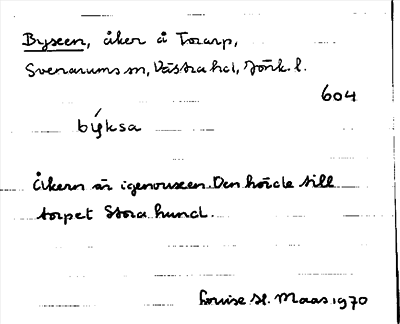 Byseen, åker å Torarp,
Svenarums sn, Västra hd, Jönk. l.
604
Åkern är igenvuxen. Den hörde till
torpet Stora hund.
Louise H. Maas 1970